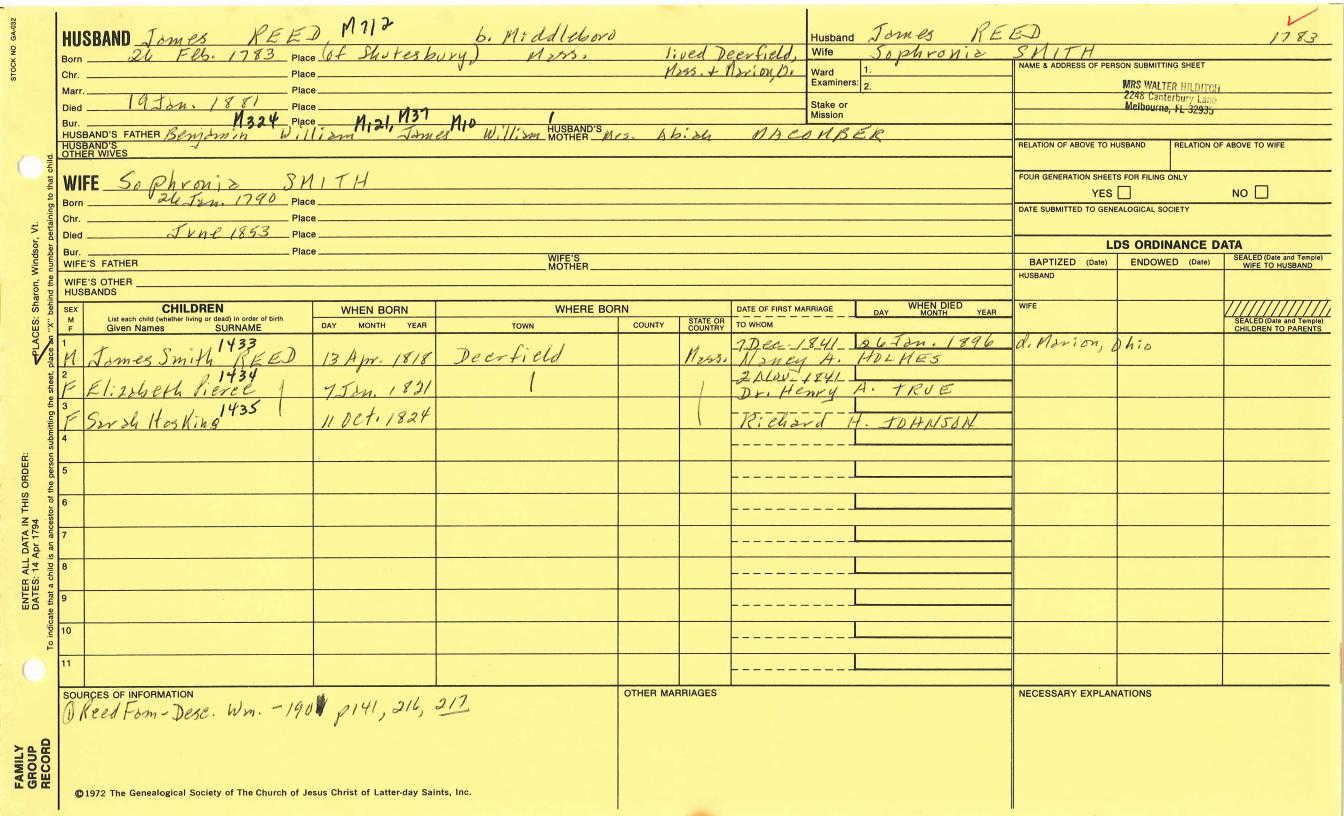 STOCK NO. GA-032
HUSBAND James REED M712 b. Middleboro
Born 26 Feb. 1783 Place (of Shutesbury) Mass. lived Deerfield,
Chr. Place Mass. & Marion, O.
Marr. Place
Died 19 Jan. 1881 Place
Bur. Place
M324 M121, M37 M10 1
HUSBAND'S FATHER Benjamin William James William HUSBAND'S MOTHER Mrs. Abiah MACOMBER
HUSBAND'S OTHER WIVES
Husband James REED 1783
Wife Sophronia SMITH
Ward Examiners: 1.
2.
Stake or Mission
NAME & ADDRESS OF PERSON SUBMITTING SHEET
MRS WALTER HILDITCH
2248 Canterbury Lane
Melbourne, FL 32935
RELATION OF ABOVE TO HUSBAND RELATION OF ABOVE TO WIFE
FOUR GENERATION SHEETS FOR FILING ONLY
YES NO
DATE SUBMITTED TO GENEALOGICAL SOCIETY
LDS ORDINANCE DATA
BAPTIZED (Date) ENDOWED (Date) SEALED (Date and Temple) WIFE TO HUSBAND
HUSBAND
WIFE
SEALED (Date and Temple) CHILDREN TO PARENTS
WIFE Sophronia SMITH
Born 26 Jan. 1790 Place
Chr. Place
Died June 1853 Place
Bur. Place
WIFE'S FATHER WIFE'S MOTHER
WIFE'S OTHER HUSBANDS
SEX M F CHILDREN WHEN BORN WHERE BORN DATE OF FIRST MARRIAGE WHEN DIED
List each child (whether living or dead) in order of birth
Given Names SURNAME DAY MONTH YEAR TOWN COUNTY STATE OR COUNTRY TO WHOM DAY MONTH YEAR
1 1433 7 Dec. 1841 26 Jan. 1896
M James Smith REED 13 Apr. 1818 Deerfield Mass. Nancy A. HOLMES d. Marion, Ohio
2 1434 2 Nov. 1841
F Elizabeth Pierce 7 Jan. 1821 Dr. Henry A. TRUE
3 1435
F Sarah Hosking 11 Oct. 1824 Richard H. JOHNSON
4
5
6
7
8
9
10
11
SOURCES OF INFORMATION
① Reed Fam - Desc. Wm. - 1901 p141, 216, 217
OTHER MARRIAGES
NECESSARY EXPLANATIONS
©1972 The Genealogical Society of The Church of Jesus Christ of Latter-day Saints, Inc.
FAMILY GROUP RECORD
ENTER ALL DATA IN THIS ORDER:
DATES: 14 Apr 1794 PLACES: Sharon, Windsor, Vt.
To indicate that a child is an ancestor of the person submitting the sheet, place an "X" behind the number pertaining to that child.